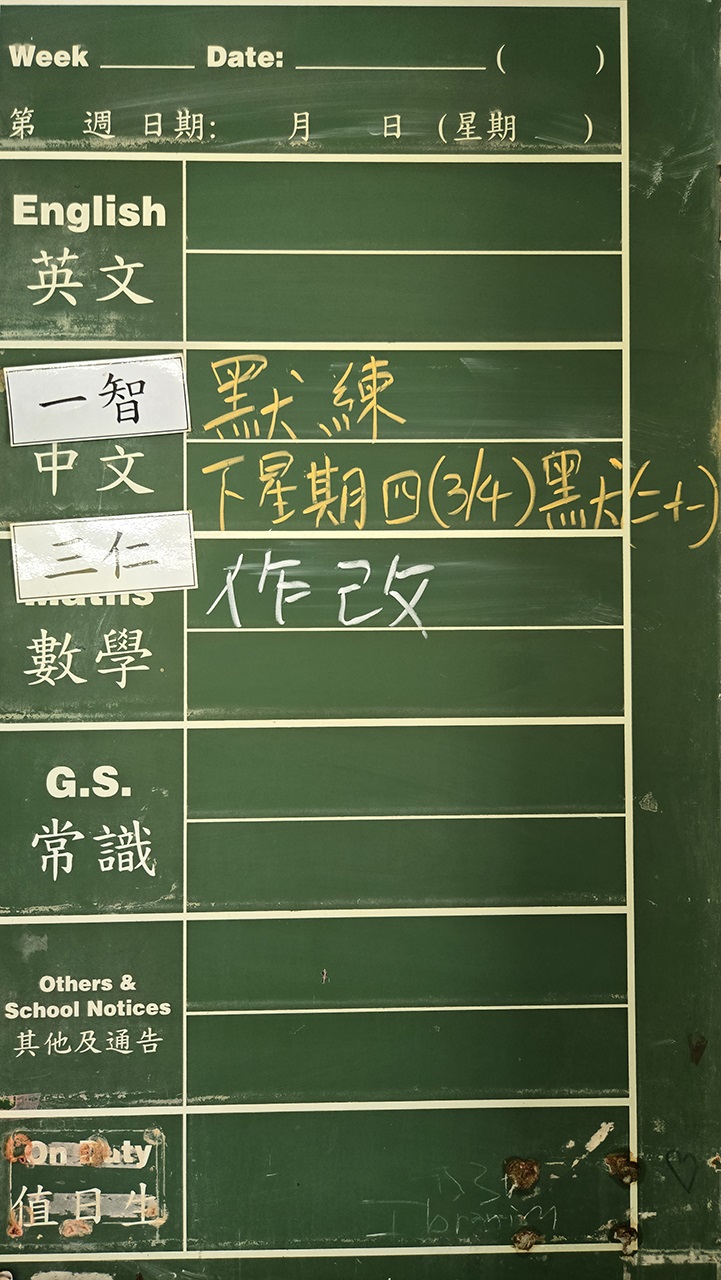 Week ______ Date: ____________ (        )
第 週 日期: 月 日 (星期 )
English
英文
一智
默練
中文
下星期四(3/4)默(二十一)
三仁
作改
Maths
數學
G.S.
常識
Others &
School Notices
其他及通告
On Duty
值日生